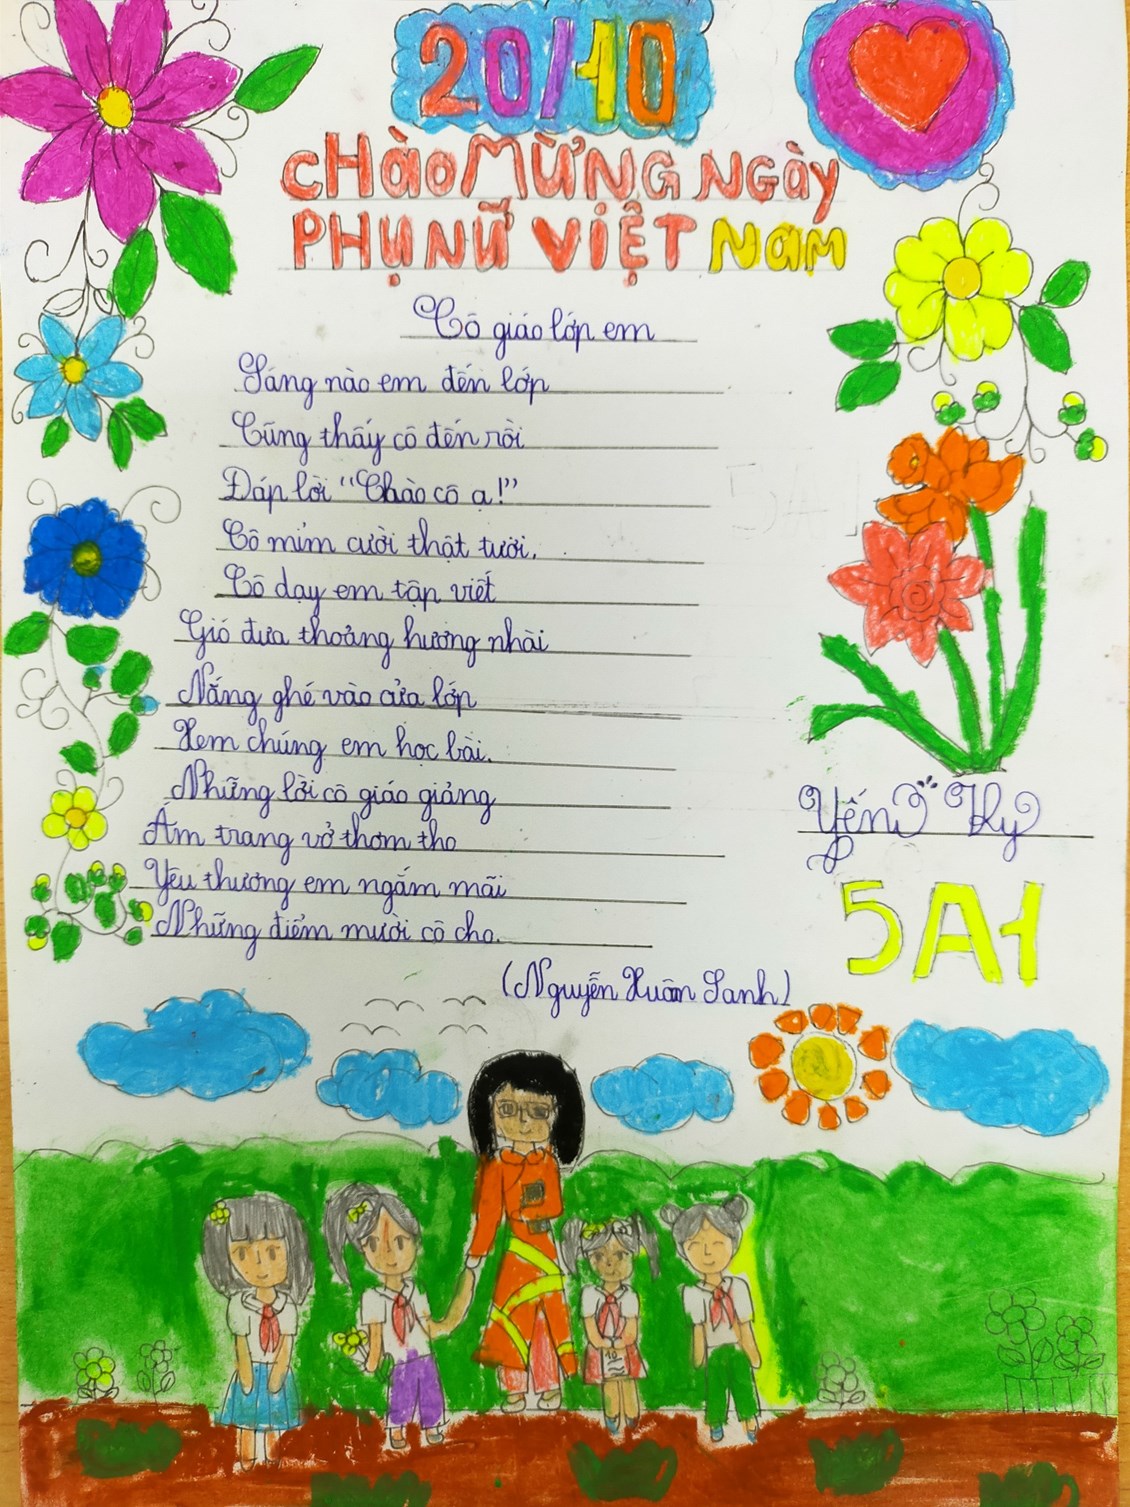 20/10
CHÀO MỪNG NGÀY
PHỤ NỮ VIỆT NAM
Cô giáo lớp em
Sáng nào em đến lớp
Cũng thấy cô đến rồi
Đáp lời “Chào cô ạ!”
Cô mỉm cười thật tươi.
Cô dạy em tập viết
Gió đưa thoảng hương nhài
Nắng ghé vào cửa lớp
Xem chúng em học bài.
Những lời cô giáo giảng
Ấm trang vở thơm tho
Yêu thương em ngắm mãi
Những điểm mười cô cho.
(Nguyễn Xuân Sanh)
Yến Vy
5A1
10